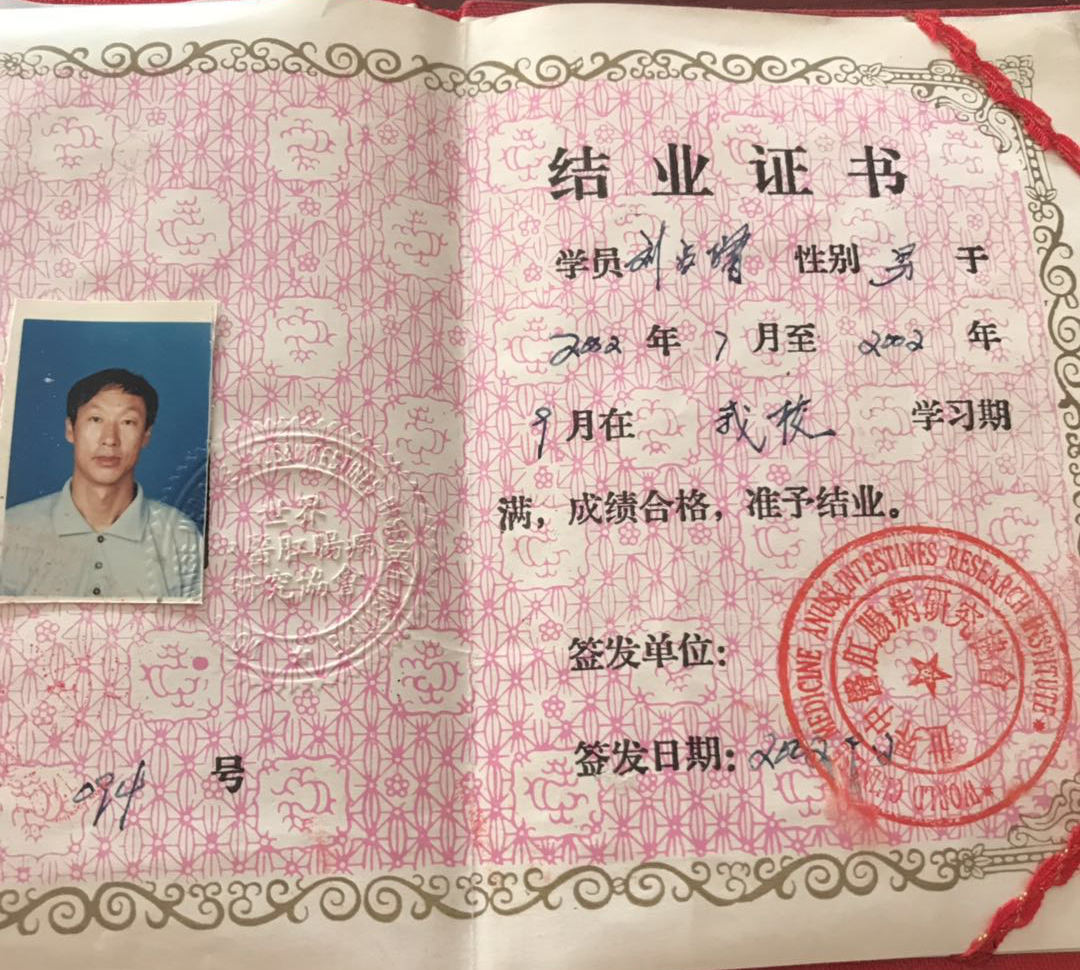 世界
中醫肛腸病
研究協會
094 号
结业证书
学员 刘占增 性别 男 于
2002 年 7 月至 2002 年
9 月在 我校 学习期
满，成绩合格，准予结业。
签发单位：
签发日期：2002.9.2
MEDICINE ANUS&INTESTINES RESEARCH INSTITUTE
世界中醫肛腸病研究協會
WORLD